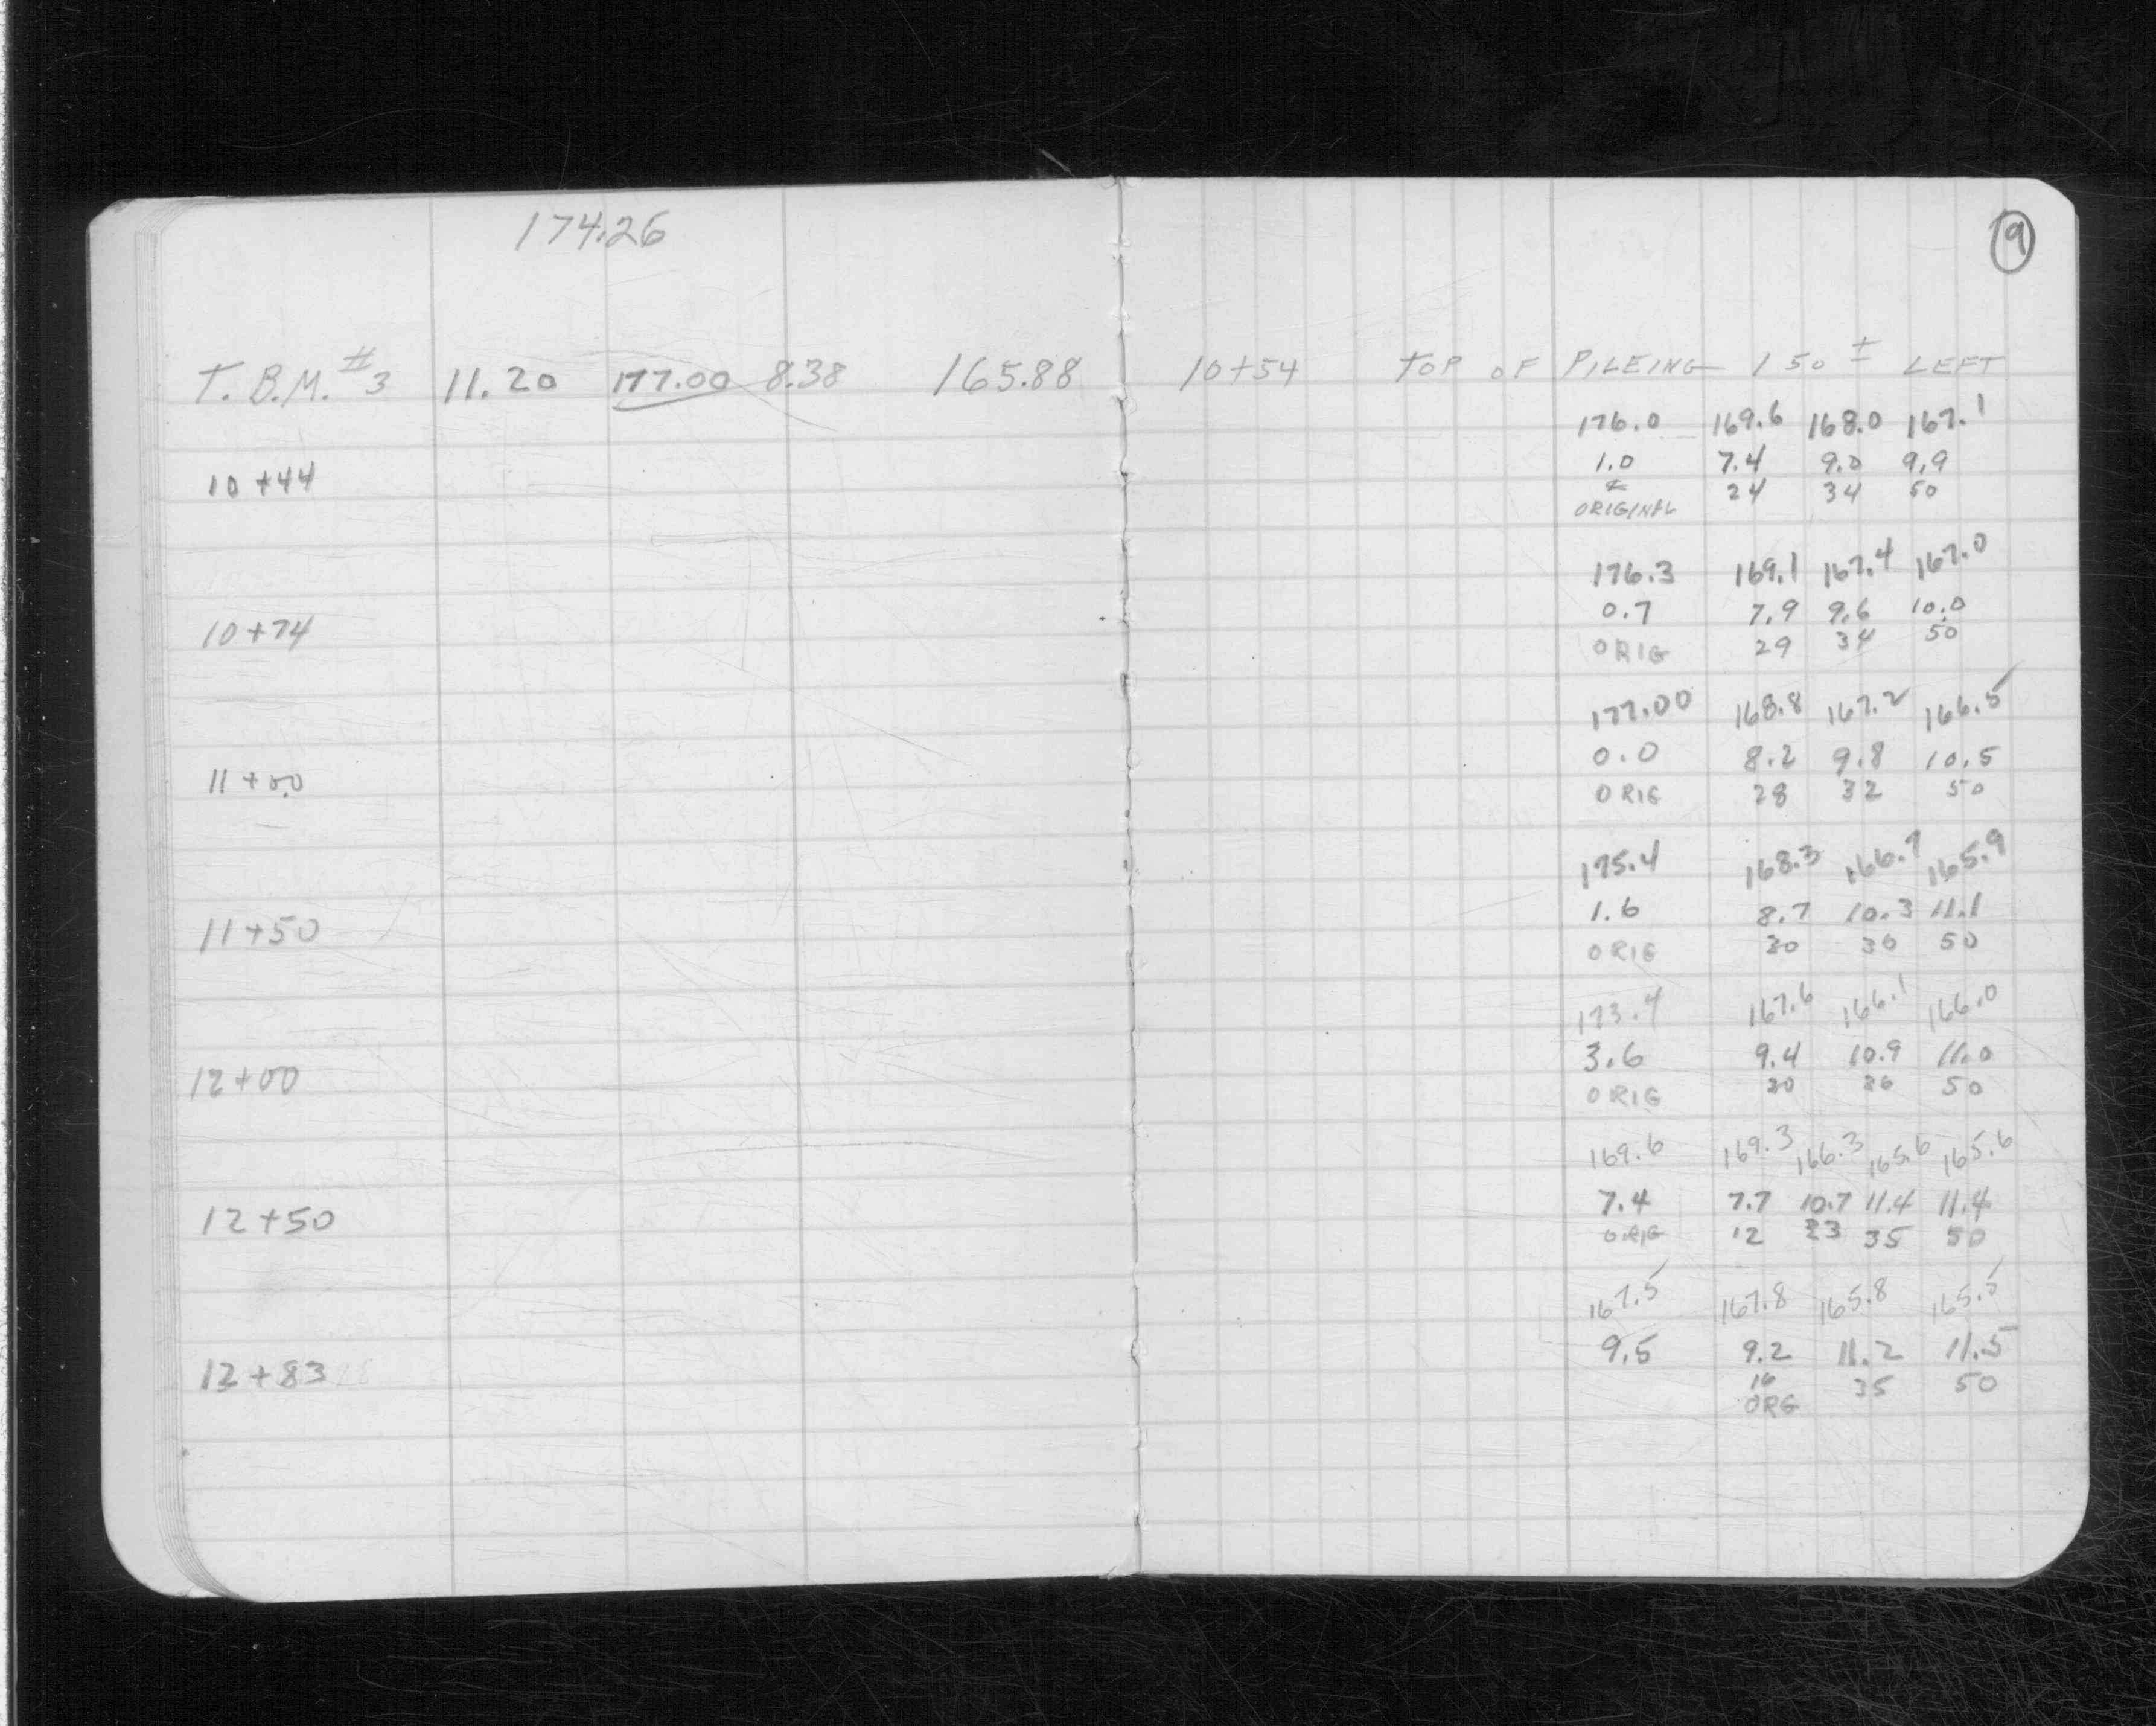 174.26
9
T. B.M. #3 11.20 177.00 8.38 165.88 10+54 TOP OF PILEING 150 ± LEFT
176.0 169.6 168.0 167.1
10+44 1.0 7.4 9.0 9.9
24 34 50
ORIGINAL
176.3 169.1 167.4 167.0
10+74 0.7 7.9 9.6 10.0
ORIG 29 34 50
177.00 168.8 167.2 166.5
11+00 0.0 8.2 9.8 10.5
ORIG 28 32 50
175.4 168.3 166.7 165.9
11+50 1.6 8.7 10.3 11.1
ORIG 30 36 50
173.4 167.6 166.1 166.0
12+00 3.6 9.4 10.9 11.0
ORIG 30 36 50
169.6 169.3 166.3 165.6 165.6
12+50 7.4 7.7 10.7 11.4 11.4
ORIG 12 23 35 50
167.5 167.8 165.8 165.5
12+83 9.5 9.2 11.2 11.5
16 35 50
ORG